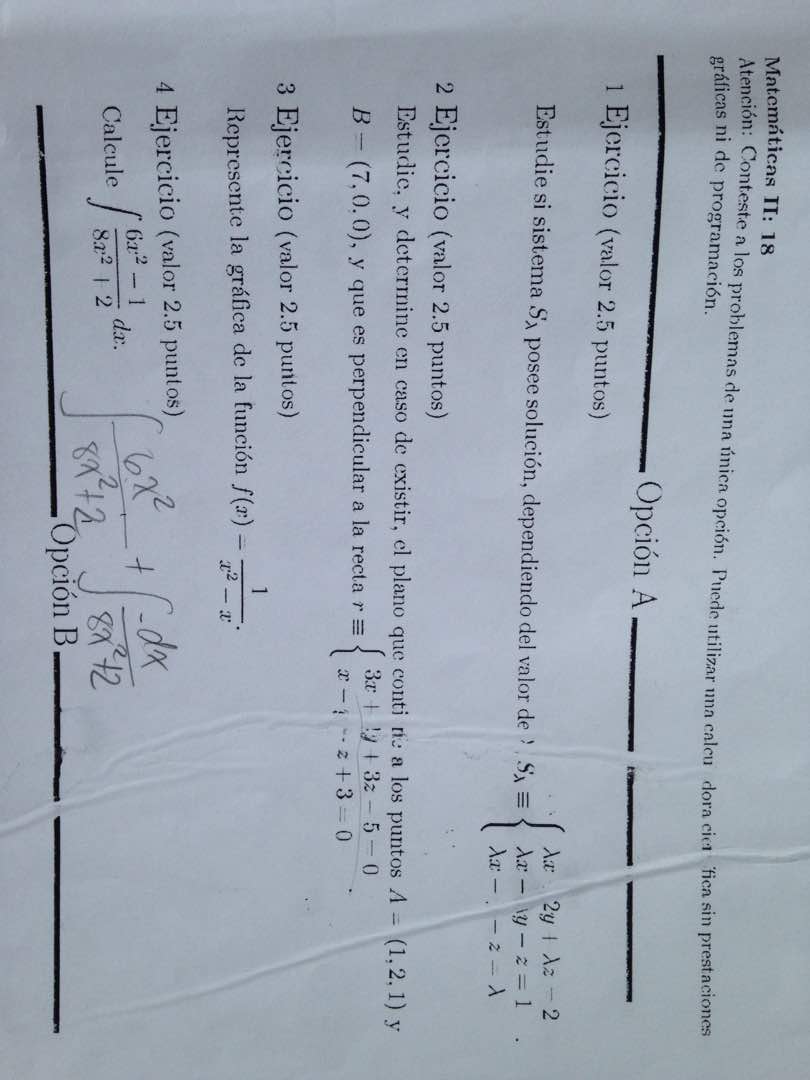 Matemáticas II: 18
Atención: Conteste a los problemas de una única opción. Puede utilizar una calcu dora cien fica sin prestaciones
gráficas ni de programación.
Opción A
1 Ejercicio (valor 2.5 puntos)
Estudie si sistema S_λ posee solución, dependiendo del valor de λ, S_λ ≡ { λx 2y + λz = 2
λx − λy − z = 1 .
λx − − z = λ
2 Ejercicio (valor 2.5 puntos)
Estudie, y determine en caso de existir, el plano que contiene a los puntos A = (1, 2, 1) y
B = (7, 0, 0), y que es perpendicular a la recta r ≡ { 3x + y + 3z − 5 = 0
x − z + 3 = 0 .
3 Ejercicio (valor 2.5 puntos)
Represente la gráfica de la función f(x) = 1 / (x² − x).
4 Ejercicio (valor 2.5 puntos)
Calcule ∫ (6x² − 1) / (8x² + 2) dx.
∫ 6x² / (8x²+2) + ∫ -dx / (8x²+2)
Opción B